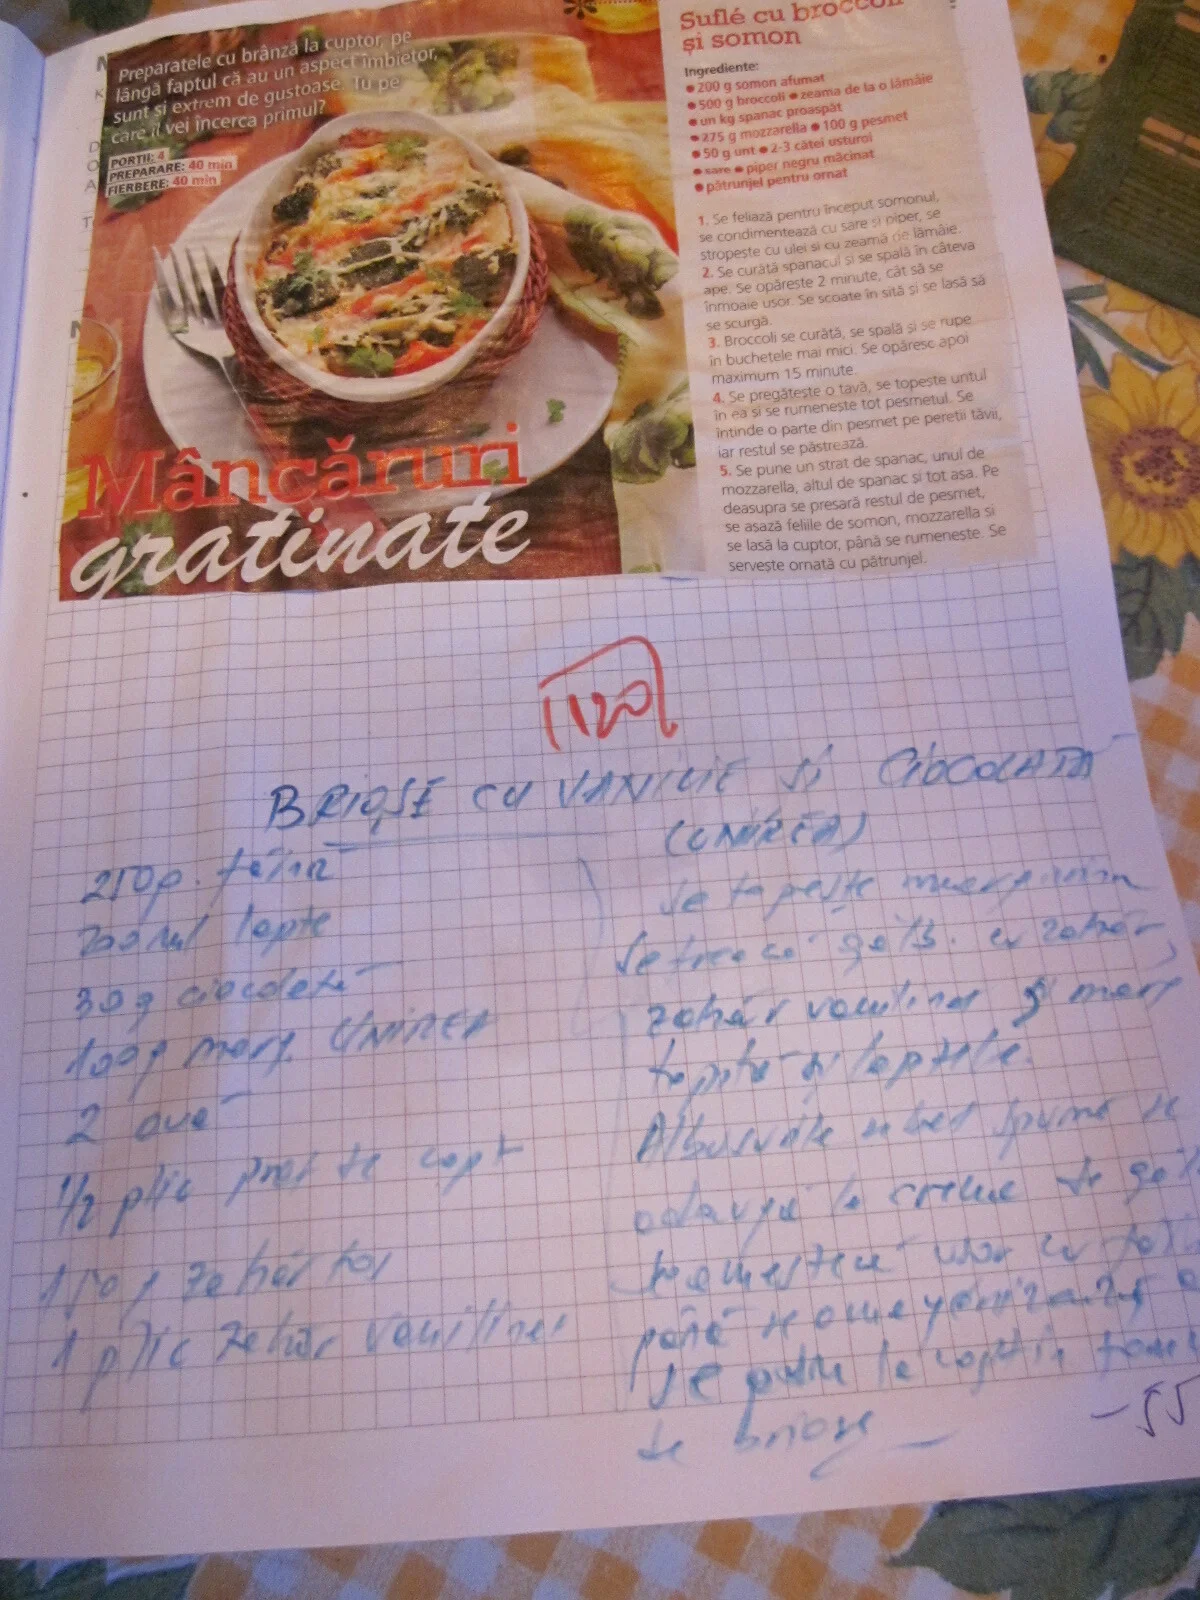 Preparatele cu brânză la cuptor, pe
lângă faptul că au un aspect îmbietor,
sunt și extrem de gustoase. Tu pe
care îl vei încerca primul?
PORȚII: 4
PREPARARE: 40 min
FIERBERE: 40 min
Mâncăruri
gratinate
Suflé cu broccoli
și somon
Ingrediente:
• 200 g somon afumat
• 500 g broccoli • zeama de la o lămâie
• un kg spanac proaspăt
• 275 g mozzarella • 100 g pesmet
• 50 g unt • 2-3 căței usturoi
• sare • piper negru măcinat
• pătrunjel pentru ornat
1. Se feliază pentru început somonul,
se condimentează cu sare și piper, se
stropește cu ulei și cu zeamă de lămâie.
2. Se curăță spanacul și se spală în câteva
ape. Se opărește 2 minute, cât să se
înmoaie ușor. Se scoate în sită și se lasă să
se scurgă.
3. Broccoli se curăță, se spală și se rupe
în buchețele mai mici. Se opăresc apoi
maximum 15 minute.
4. Se pregătește o tavă, se topește untul
în ea și se rumenește tot pesmetul. Se
întinde o parte din pesmet pe pereții tăvii,
iar restul se păstrează.
5. Se pune un strat de spanac, unul de
mozzarella, altul de spanac și tot așa. Pe
deasupra se presară restul de pesmet,
se așază feliile de somon, mozzarella și
se lasă la cuptor, până se rumenește. Se
servește ornată cu pătrunjel.
BRIOȘE CU VANILIE și CIOCOLATĂ
(UNIREA)
250g. făină
200ml lapte
30g ciocolată
100g marg. UNIREA
2 ouă
1/2 plic praf de copt
150g zahăr tos
1 plic zahăr vanilinat
Se topește margarina
Se freacă gălb. cu zahăr,
zahăr vanilinat și marg
topită și laptele.
Albușurile se bat spumă se
adaugă la crema de găl
se amestecă ușor cu
până se omogenizează
se pune la copt în
de brioșe
- 55